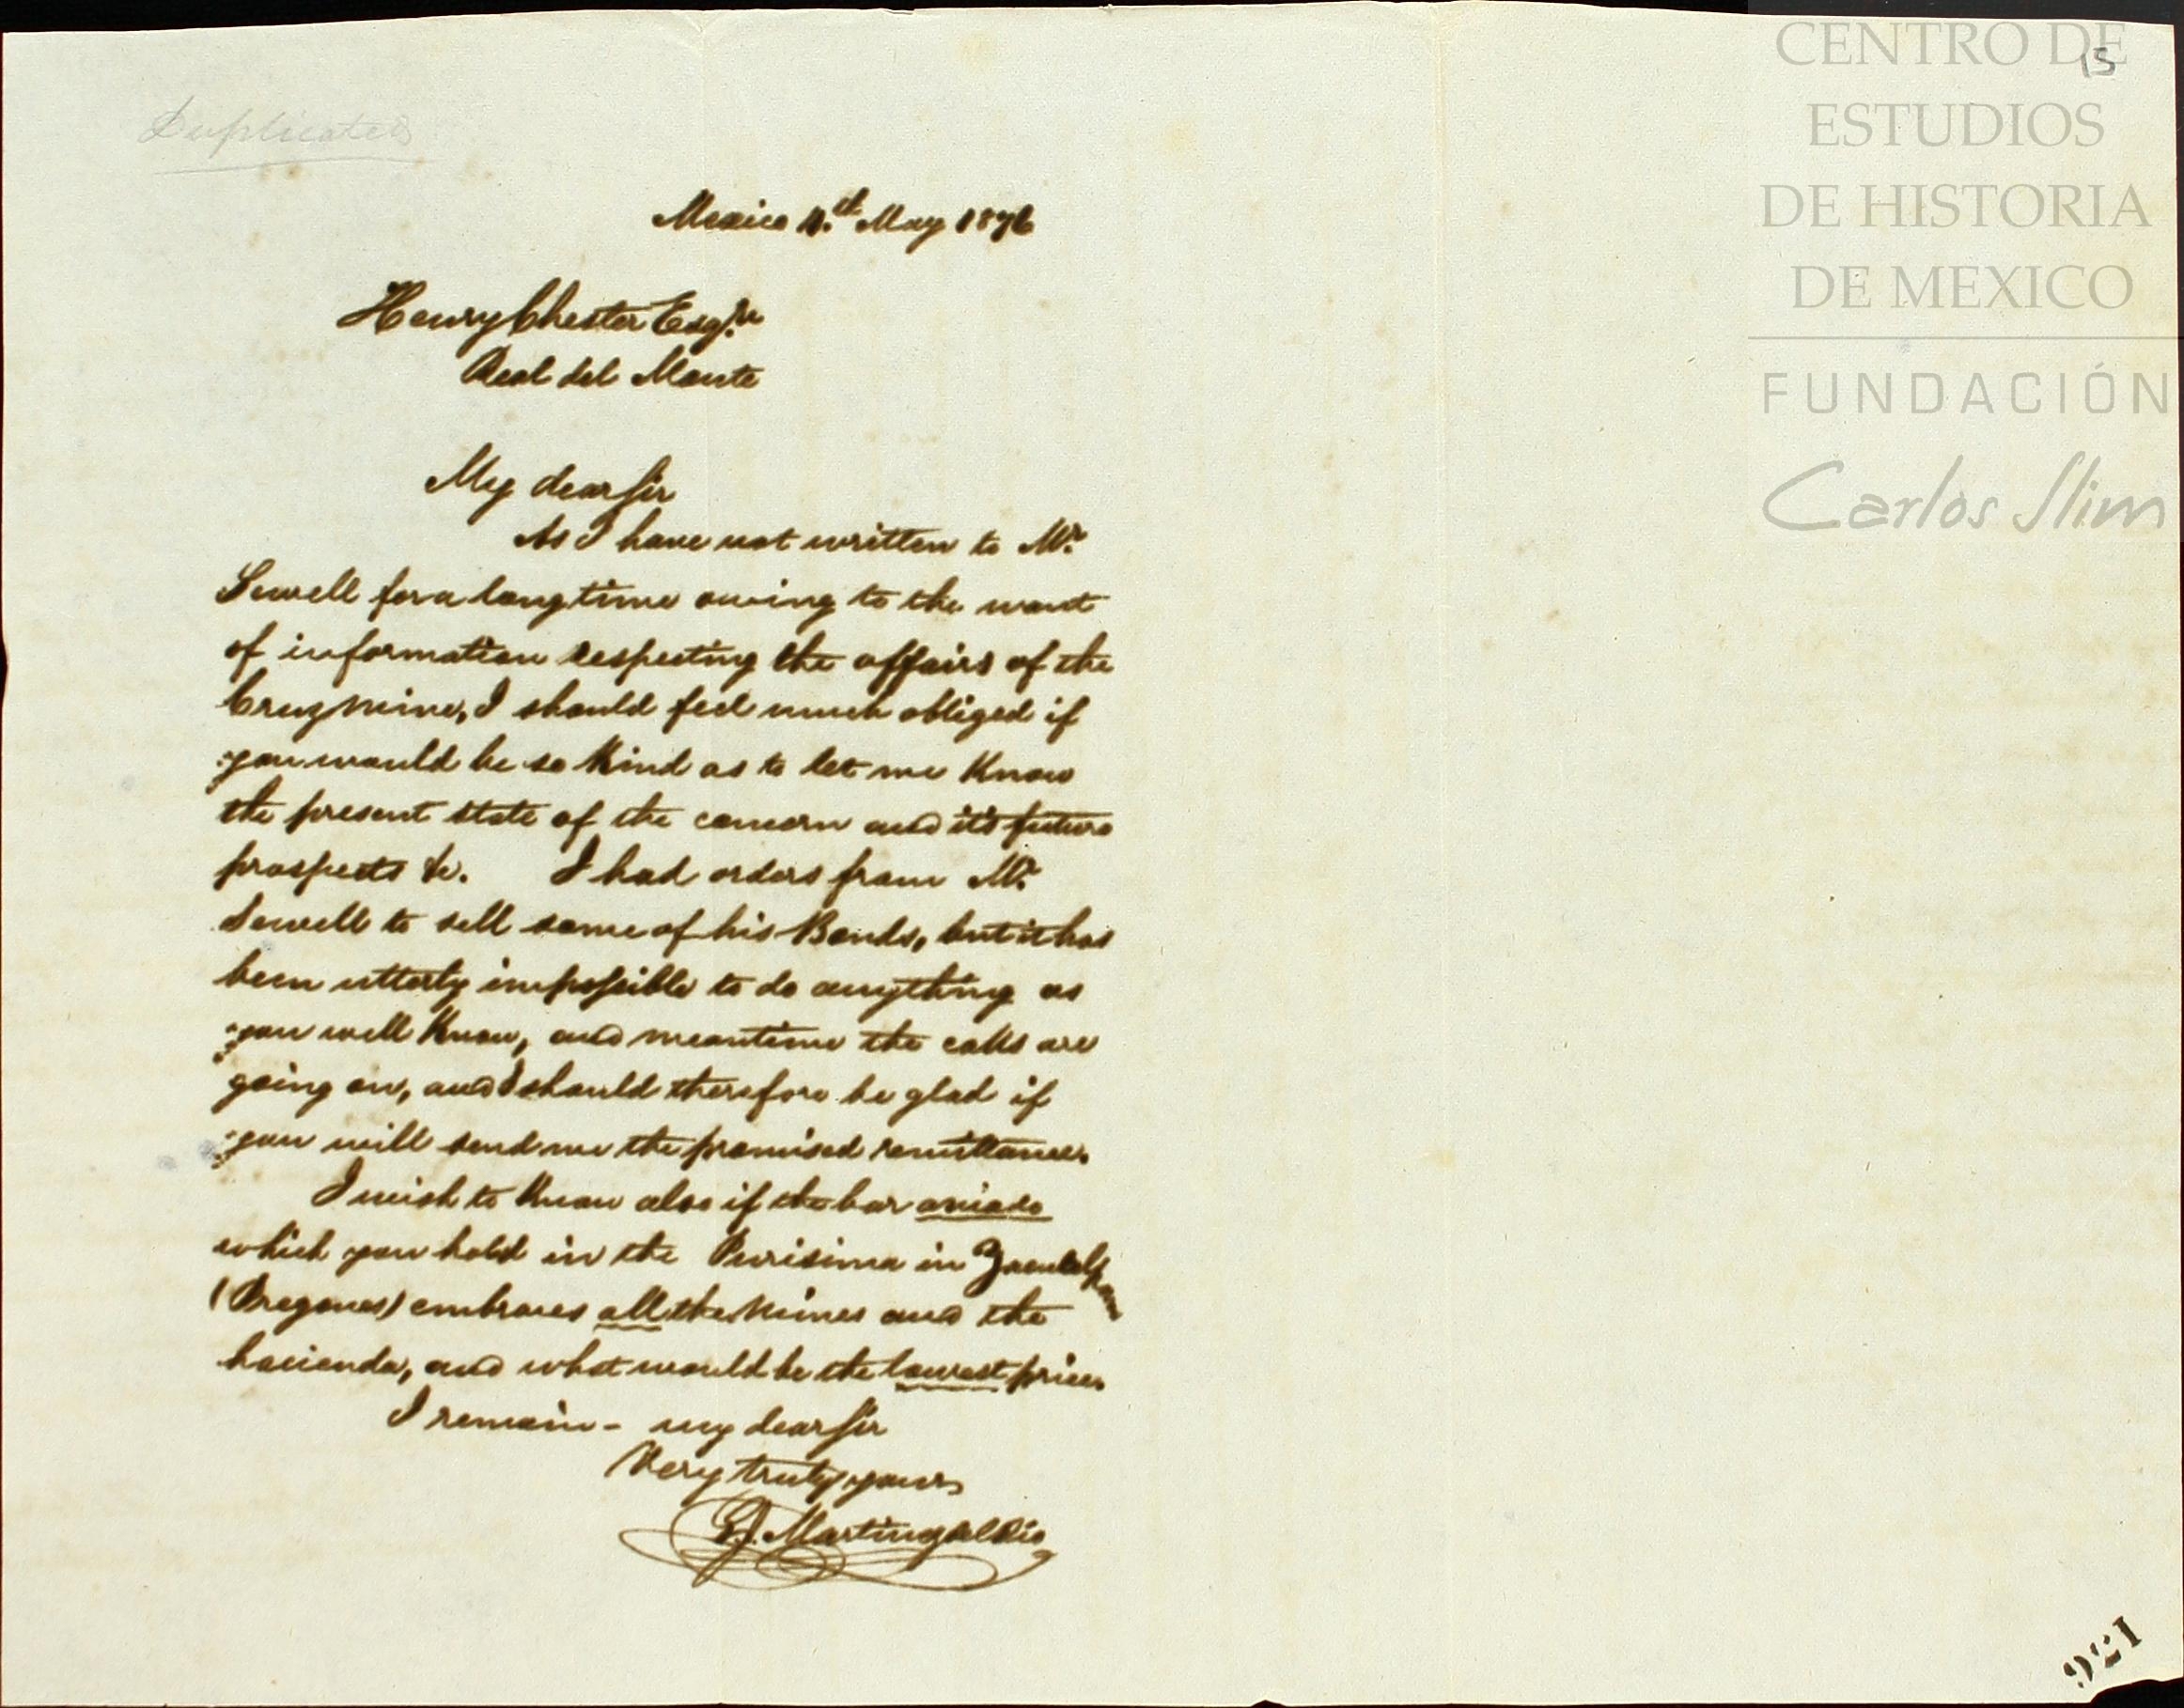 Duplicated
15
Mexico 4.th May 1876
Henry Chester Esq.re
Real del Monte
My dear Sir
As I have not written to Mr.
Sewell for a long time owing to the want
of information respecting the affairs of the
Cruz mine, I should feel much obliged if
you would be so kind as to let me know
the present state of the concern and it's future
prospects &c. I had orders from Mr.
Sewell to sell some of his Bonds, but it has
been utterly impossible to do anything as
you well know, and meantime the calls are
going on, and I should therefore be glad if
you will send me the promised remittance.
I wish to know also if the bar aviada
which you hold in the Purisima in Zacualpam
(Bregones) embraces all the mines and the
hacienda, and what would be the lowest price.
I remain - my dear Sir
Very truly yours
P. Martinez del Rio
CENTRO DE
ESTUDIOS
DE HISTORIA
DE MEXICO
FUNDACIÓN
Carlos Slim